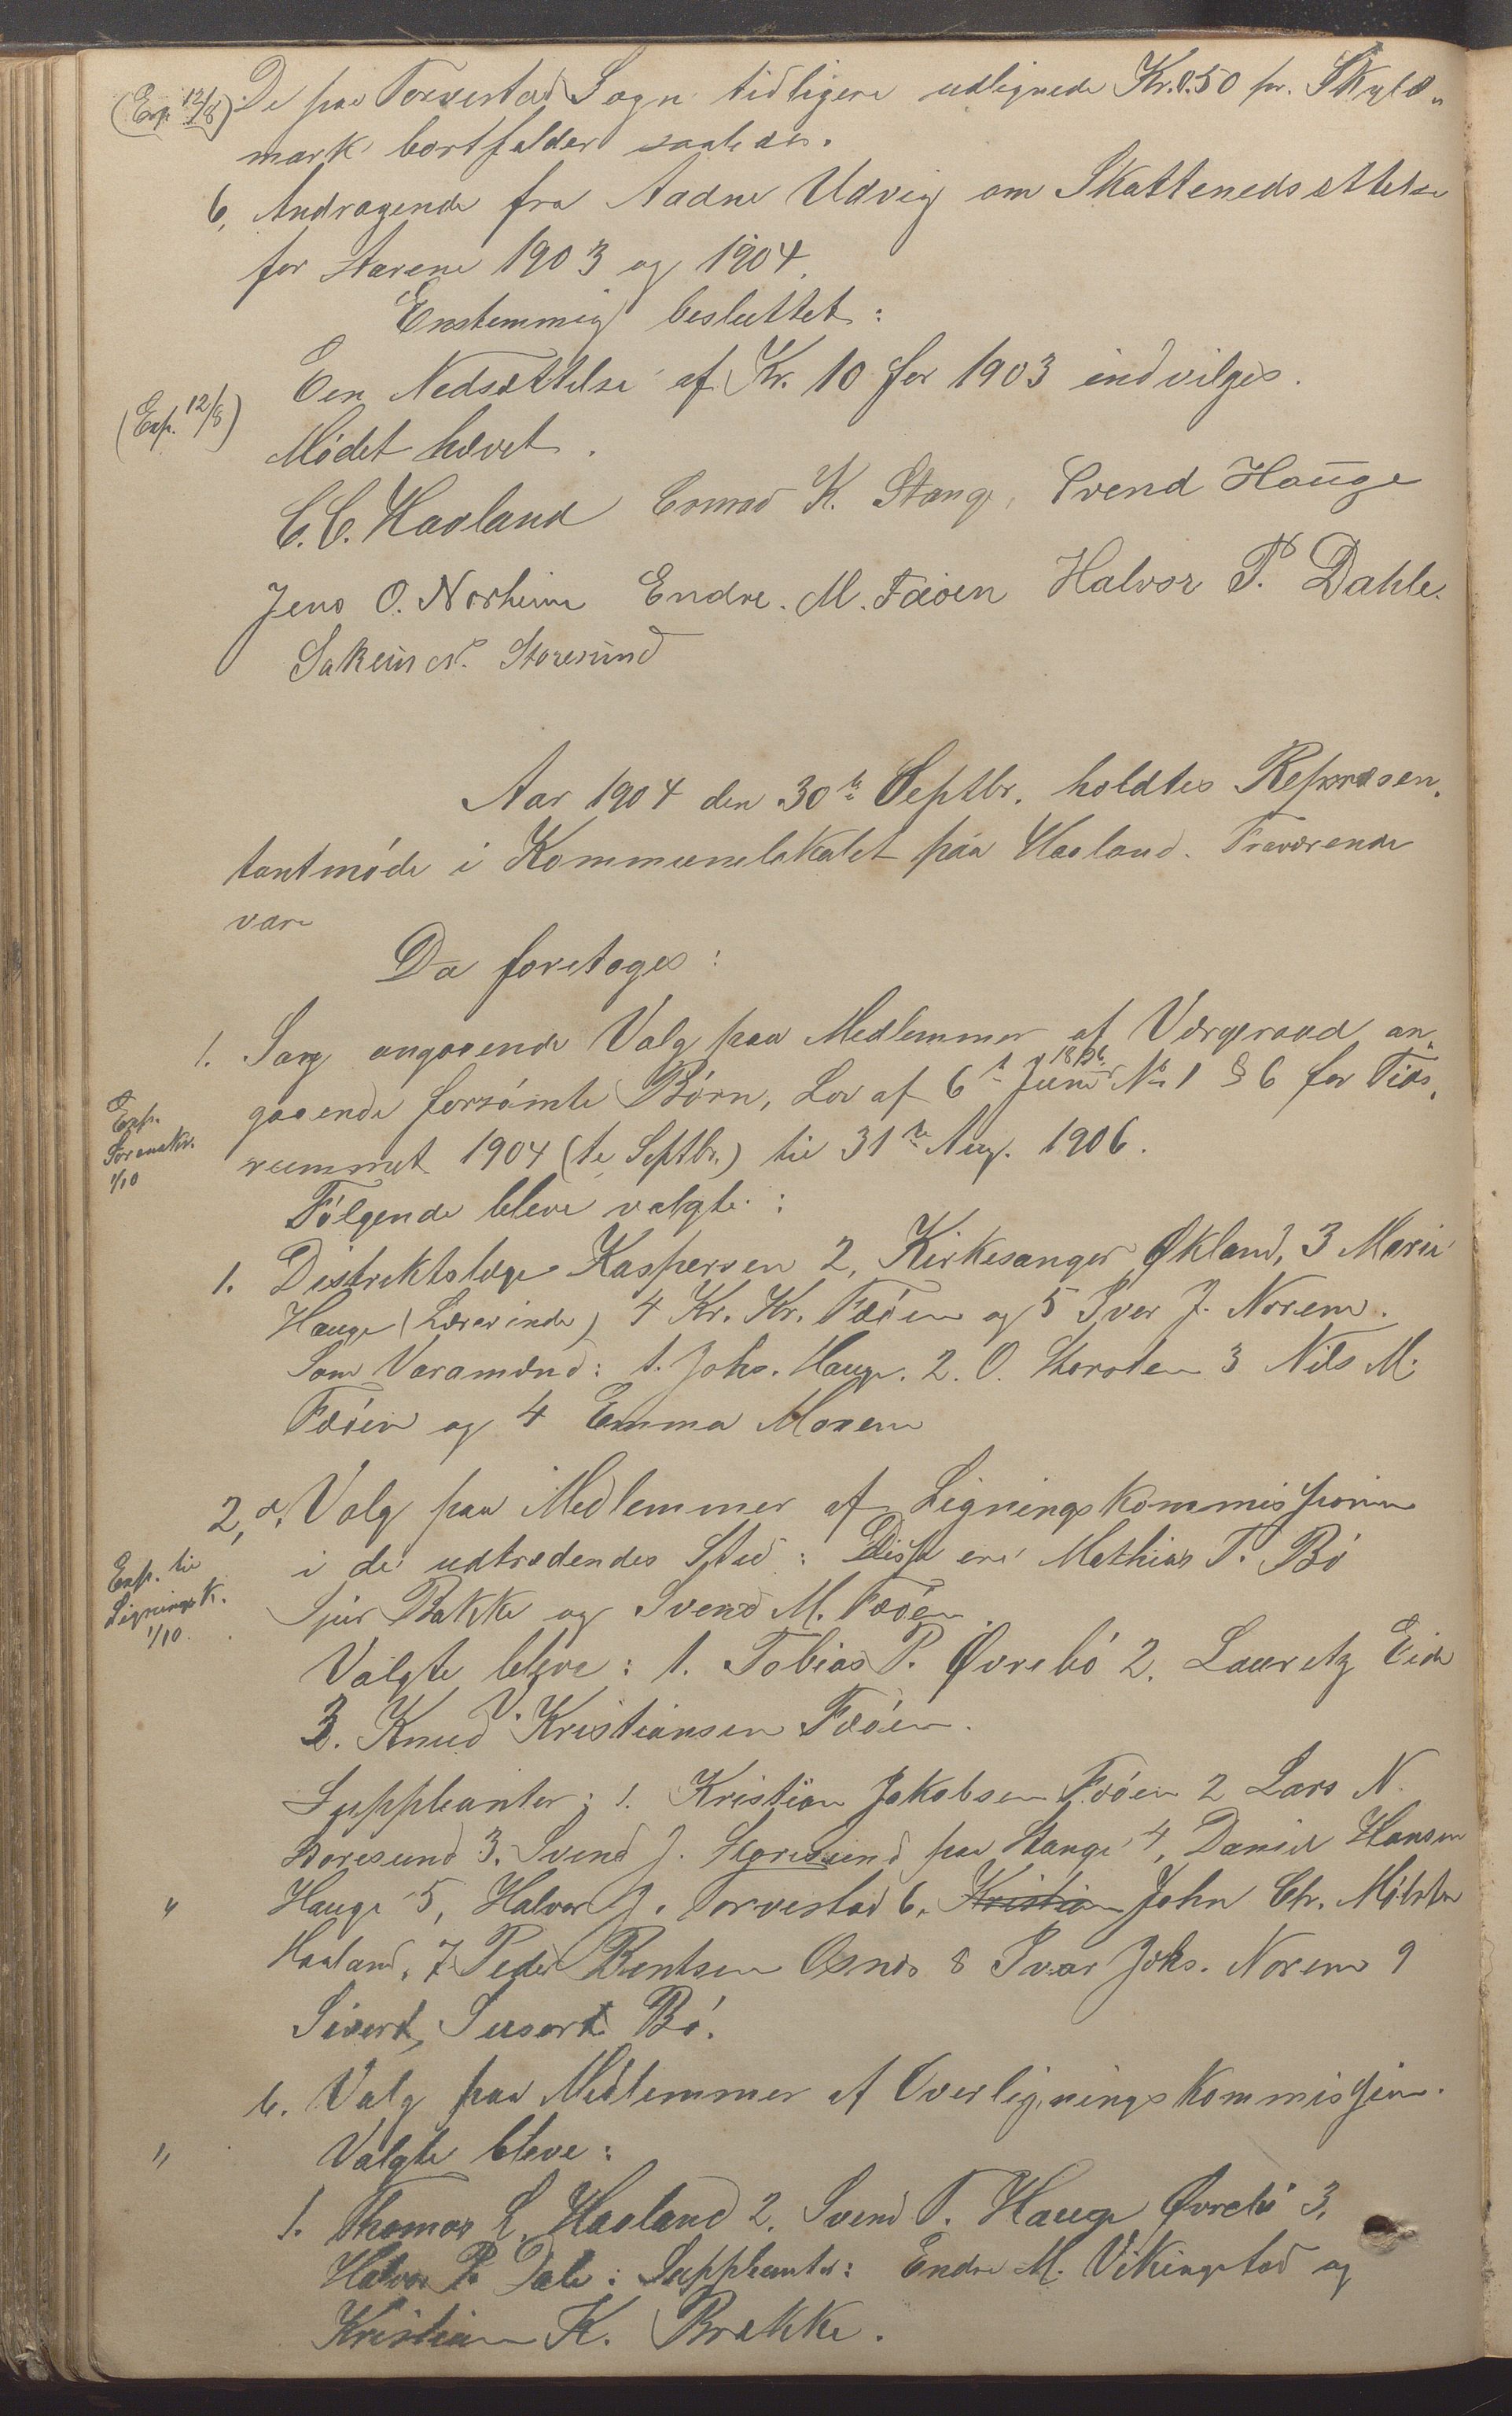 (Exp. 12/8) De paa Torvestad Sogn tidligere udlignede Kr. 0.50 pr. Skyld-
mark bortfalder saaledes.
6, Andragende fra Aadne Udvig om Skattenedsættelse
for Aarene 1903 og 1904.
Enstemmig besluttet:
Een Nedsættelse af Kr. 10 for 1903 indvilges.
(Exp. 12/8)
Mödet hævet.
C. C. Haaland Conrad K. Stange, Svend Hauge
Jens O. Norheim Endre. M. Fæöen Halvor P. Dahle.
Sakeus N. Storesund
Aar 1904 den 30te Septbr. holdtes Repræsen-
tantmöde i Kommunelokalet paa Haaland. Fraværende
vare
Da foretoges:
1. Sag angaaende Valg paa Medlemmer af Værgeraad an-
gaaende forsömte Börn, Lov af 6te Juni 1896 No 1 § 6 for Tids-
rummet 1904 (1e Septbr.) til 31te Aug. 1906.
Exp.
Sorenskr.
1/10
Fölgende bleve valgte:
1. Distriktslæge Kaspersen 2, Kirkesanger Økland, 3 Marie
Hauge (Lærerinde) 4 Kr. Kr. Fæöen og 5 Iver J. Norem.
Som Varamænd: 1. Johs. Hauge. 2. O. 3 Nils M.
Fæöen og 4 Emma
2, a. Valg paa Medlemmer af Ligningskommissionen
i de udtrædendes Sted: Disse ere Mathias T. Bö
Exp. til
Lignings K.
1/10.
Sjur Bakke og Svend M. Fæöen.
Valgte bleve: 1. Tobias P. Øvrebö 2. Lauretz Eide
3. Knud V. Kristiansen Fæöen.
Suppleanter: 1. Kristian Jakobsen Fæöen 2 Lars N.
Storesund 3. Svend J. Storesund paa Stange 4, Daniel Hansen
" Hauge 5, Halvor J. Torvestad 6. Kristian John Chr. Mölstre
Haaland, 7 Peder Bentsen Osnes 8 Ivar Johs. Norem 9
Sivert, Sjursen Bö.
b. Valg paa Medlemmer af Overligningskommission.
" Valgte bleve:
1. Thomas L. Haaland 2. Svend T. Hauge Øvrebö 3.
Halvor P. Dale: Suppleanter: Endre M. Vikingstad og
Kristian K. Brekke.